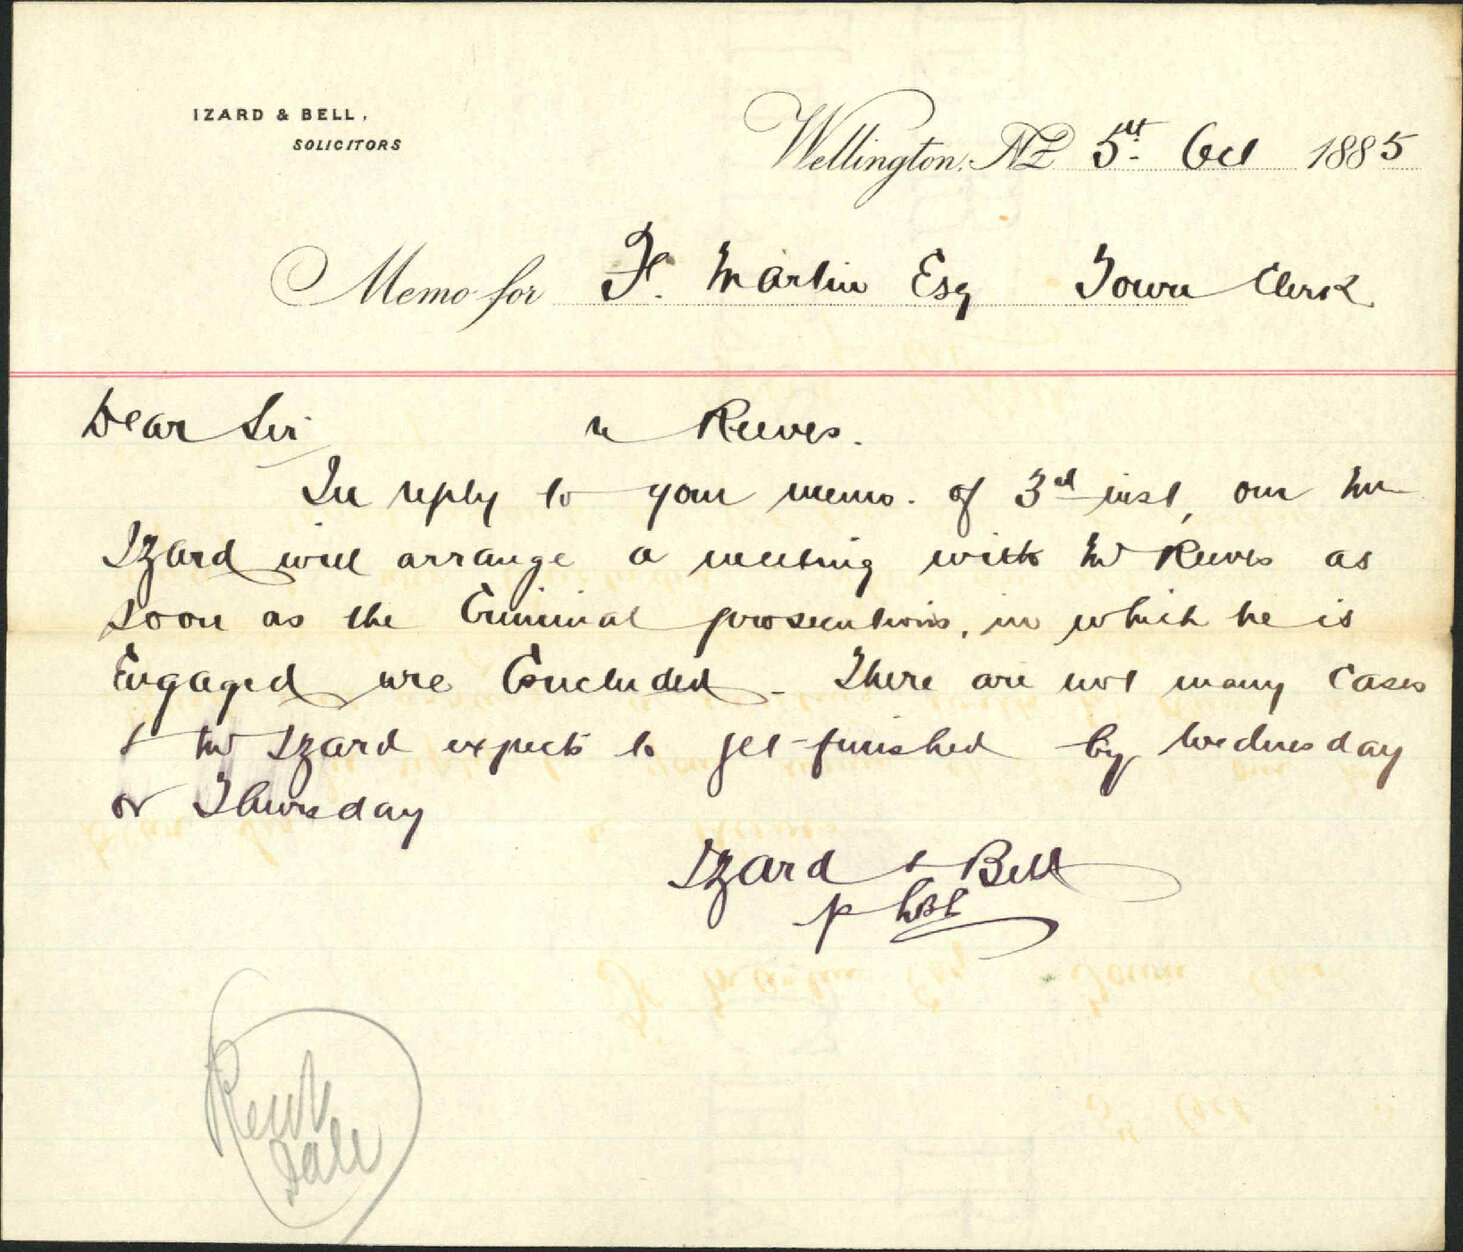 IZARD & BELL,
SOLICITORS
Wellington, NZ 5th Oct 1885
Memo for F. Martin Esq Town Clerk
Dear Sir re Reeves.
In reply to your memo. of 3rd inst, our Mr
Izard will arrange a meeting with Mr Reeves as
soon as the Criminal prosecutions, in which he is
Engaged are Concluded - There are not many Cases
& Mr Izard expects to get finished by Wednesday
or Thursday
Izard & Bell
p